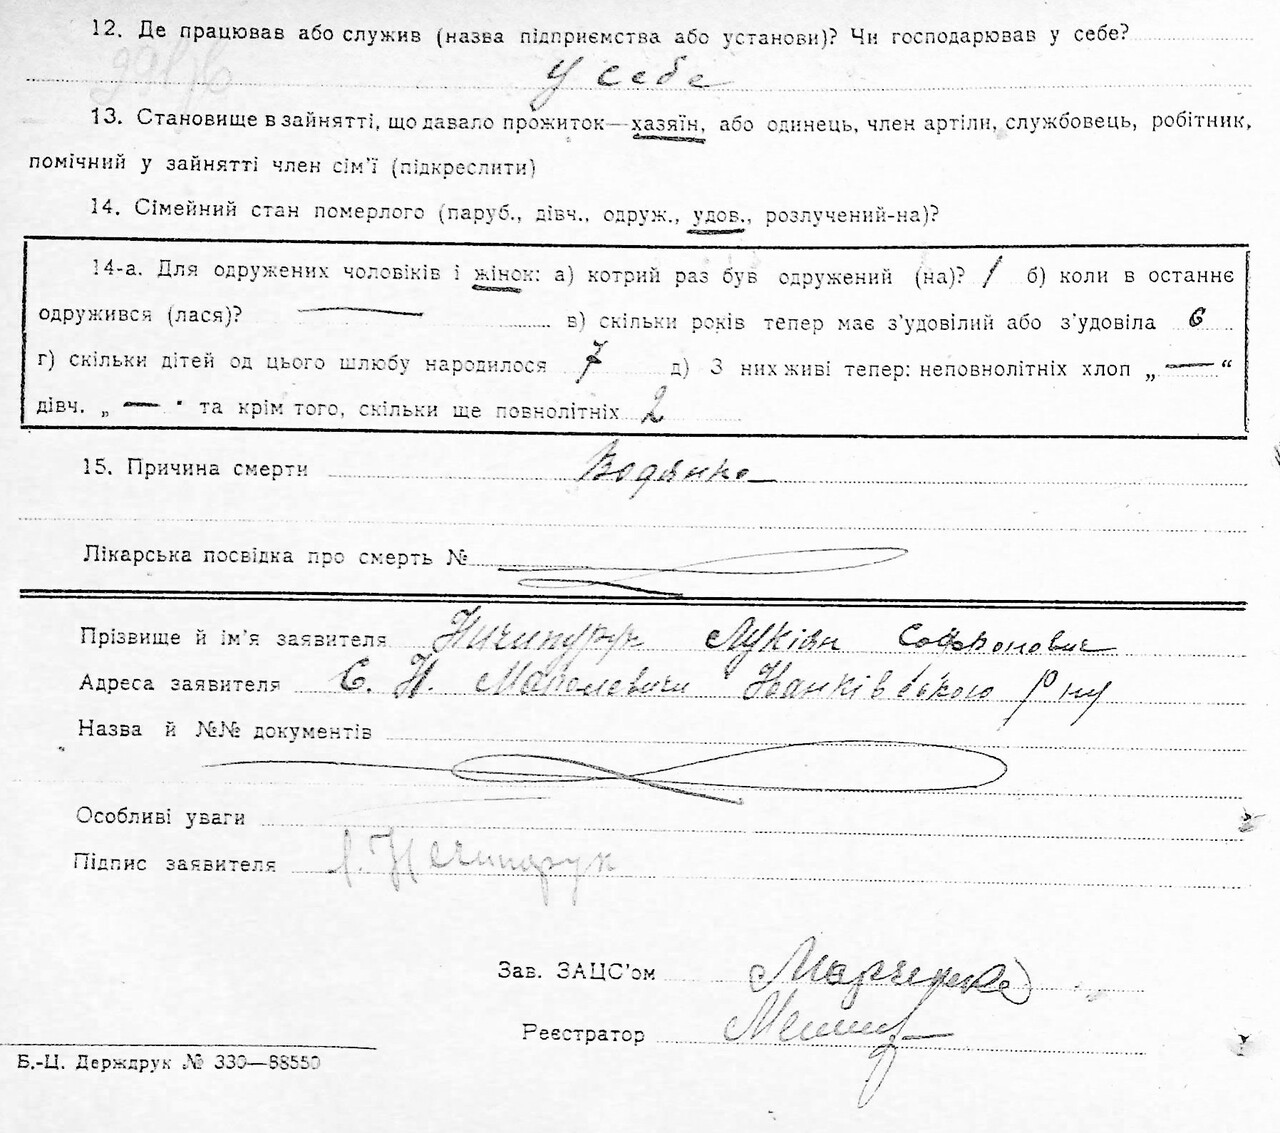 12. Де працював або служив (назва підприємства або установи)? Чи господарював у себе?
У себе
13. Становище в зайнятті, що давало прожиток—хазяїн, або одинець, член артіли, службовець, робітник,
помічний у зайнятті член сім'ї (підкреслити)
14. Сімейний стан померлого (паруб., дівч., одруж., удов., розлучений-на)?
14-а. Для одружених чоловіків і жінок: а) котрий раз був одружений (на)? / б) коли в останнє
одружився (лася)? — в) скільки років тепер має з'удовілий або з'удовіла 6
г) скільки дітей од цього шлюбу народилося 7 д) З них живі тепер: неповнолітніх хлоп „ — “
дівч. „ — " та крім того, скільки ще повнолітніх 2
15. Причина смерти Водянка
Лікарська посвідка про смерть №
Прізвище й ім'я заявителя Ничипорук Лукіян Софронович
Адреса заявителя С. Н. Іванківського р ну
Назва й №№ документів
Особливі уваги
Підпис заявителя Л. Нечипорук
Зав. ЗАЦС'ом Марченко
Реєстратор
Б.-Ц. Держдрук № 330—88550